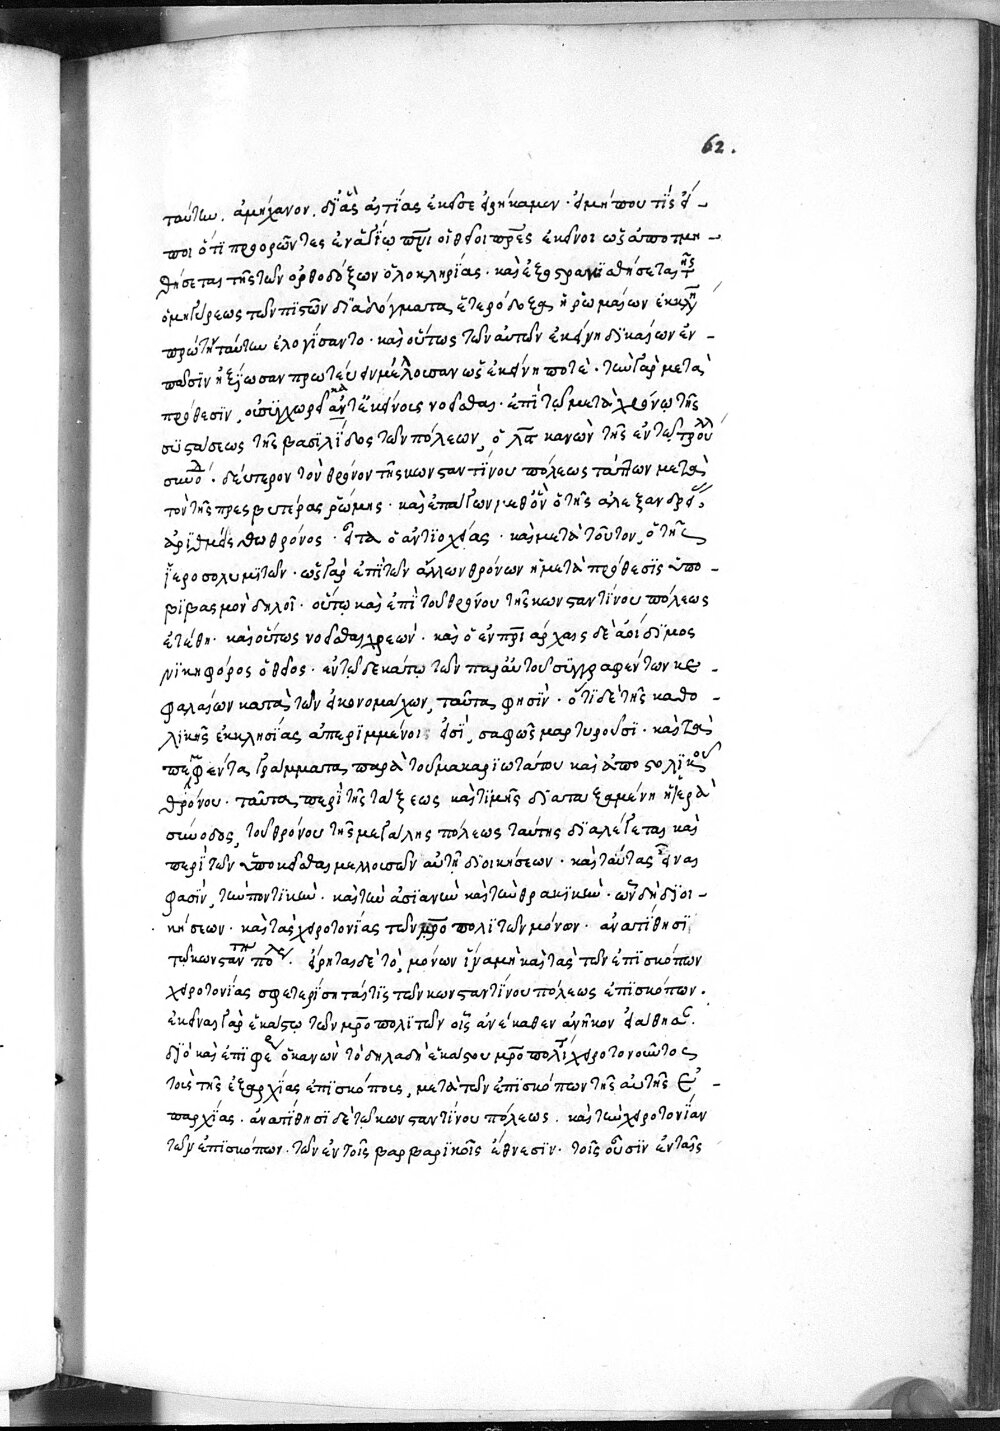 62.
ταύτην. ἀμήχανον. δι' ἃς αἰτίας ἐκεῖσε εἰρήκαμεν · εἰ μήπου τὶς εἴ-
ποι ὅτι προορῶντες ἐναγίῳ πνι οἱ θεῖοι πρες ἐκεῖνοι ὡς ἀποτμη-
θήσεται τῆς τῶν ὀρθοδόξων ὁλοκληρίας · καὶ ἐξοστρακισθήσεται
ὁμηγύρεως τῶν πιστῶν διὰ δόγματα ἑτερόδοξα ἡ ῥωμαίων ἐκκλη
πρώτην ταύτην ἐλογίσαντο · καὶ οὕτως τῶν αὐτῶν ἐκείνη δικαίων ἐν
πᾶσιν ἠξίωσαν πρωτεύειν μέλλουσαν ὡς ἐκείνη ποτὲ · τὴν γὰρ μετὰ
πρόθεσιν, οὐ συγχωρεῖ ἀντ' ἐκείνοις νοεῖσθαι · ἐπὶ τῷ μετὰ χρόνῳ τῆς
συστάσεως τῆς βασιλίδος τῶν πόλεων, ὁ λς κανὼν τῆς ἐν τῷ τρούλλ
συνοδ · δεύτερον τὸν θρόνον τῆς κωνσταντίνου πόλεως τάττων μετὰ
τὸν τῆς πρεσβυτέρας ῥώμης · καὶ ἐπάγων μεθ' ὃν ὁ τῆς ἀλεξανδρείας
ἀριθμείσθω θρόνος · εἶτα ὁ ἀντιοχείας · καὶ μετὰ τοῦτον, ὁ τῆς
ἱεροσολυμιτῶν · ὡς γὰρ ἐπὶ τῶν ἄλλων θρόνων ἡ μετὰ πρόθεσις ὑπο-
βιβασμὸν δηλοῖ · οὕτω καὶ ἐπὶ τοῦ θρόνου τῆς κωνσταντίνου πόλεως
ἐτέθη · καὶ οὕτως νοεῖσθαι χρεών · καὶ ὁ ἐν πρι άρχαις δὲ ἀοίδιμος
νικηφόρος ὁ θεῖος · ἐν τῷ δεκάτῳ τῶν παρ' αὐτοῦ συγγραφέντων κε-
φαλαίων κατὰ τῶν εἰκονομάχων, ταῦτα φησὶν · ὅτι δὲ τῆς καθο-
λικῆς ἐκκλησίας ἀπεριμμένοι εἰσὶ, σαφῶς μαρτυροῦσι · καὶ τὰ
πεμφέντα γράμματα παρὰ τοῦ μακαριωτάτου καὶ ἀποστολικοῦ
θρόνου · ταῦτα περὶ τῆς τάξεως καὶ τιμῆς διαταξαμένη ἡ ἱερὰ
σύνοδος, τοῦ θρόνου τῆς μεγάλης πόλεως ταύτης διαλέγεται καὶ
περὶ τῶν ὑποκεῖσθαι μελλουσῶν αὐτῇ διοικήσεων · καὶ ταύτας εἶναι
φασὶν, τὴν ποντικὴν · καὶ τὴν ἀσιανὴν καὶ τὴν θρακικὴν · ὧν δὴ διοι-
κήσεων · καὶ τὰς χειροτονίας τῶν μρο πολιτῶν μόνων · ἀνατίθησι
τῷ κωνσταντη πολεως. εἴρηται δὲ τὸ, μόνων ἵνα μὴ καὶ τὰς τῶν ἐπισκόπων
χειροτονίας σφετερίσηταί τις τῶν κωνσταντίνου πόλεως ἐπισκόπων.
ἐκεῖναι γὰρ ἑκάστῳ τῶν μρο πολιτῶν οἷς ἀνέκαθεν ἀνῆκον εἴαθησ.
διὸ καὶ ἐπιφε ὁ κανὼν τὸ δηλαδὴ ἑκάστου μρο πολι χειροτονοῦντος
τοὺς τῆς ἐξαρχίας ἐπισκόπους, μετὰ τῶν ἐπισκόπων τῆς αὐτῆς ἐ-
παρχίας · ἀνατίθησι δὲ τῷ κωνσταντίνου πόλεως. καὶ τὴν χειροτονίαν
τῶν ἐπισκόπων · τῶν ἐν τοῖς βαρβαρικοῖς ἔθνεσιν · τοῖς οὖσιν ἐν ταῖς